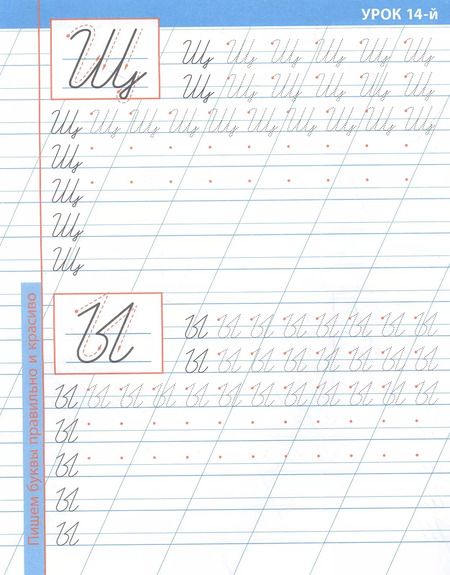 УРОК 14-й
Щ
Щ Щ Щ Щ Щ Щ
Щ Щ Щ Щ Щ Щ
Щ Щ Щ Щ Щ Щ Щ Щ Щ Щ
Щ
Щ
Щ
Щ
Ы
Ы Ы Ы Ы Ы Ы Ы Ы
Ы Ы Ы Ы Ы Ы Ы Ы
Ы Ы Ы Ы Ы Ы Ы Ы Ы Ы Ы Ы
Ы
Ы
Ы
Ы
Пишем буквы правильно и красиво